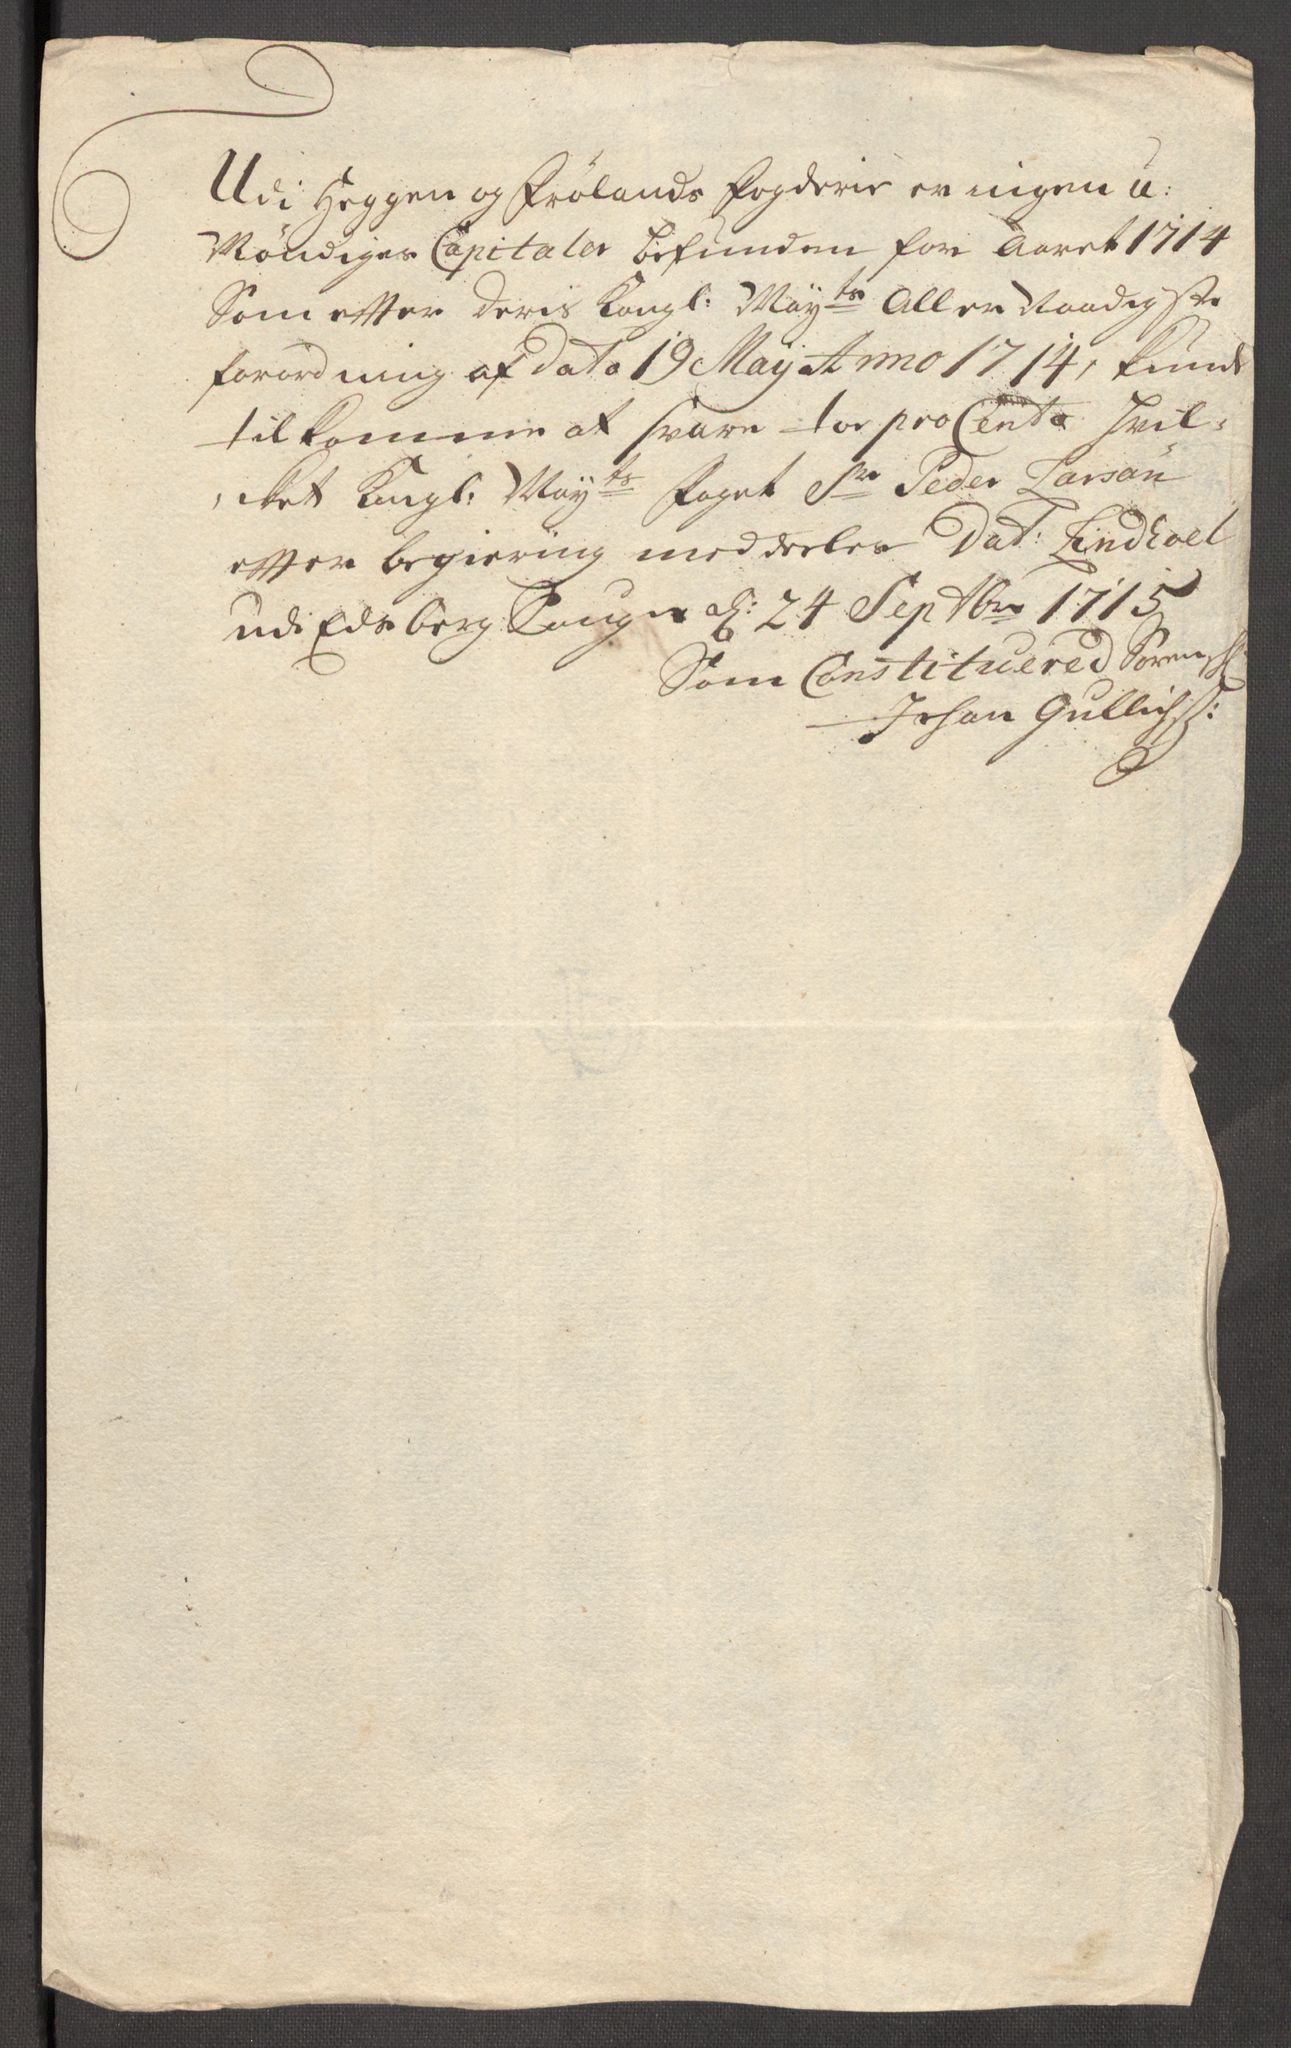 Udi Heggen og Frölands fogderie er ingen u:
Möndiges Capitaler befunden for Aaret 1714
Som efter deris Kongl: May<sup>ts</sup> Aller Naadigste
forordning af Dato 19 May Anno 1714, kunde
tilkomme at svare toe pro Cento hvil-
cket Kongl: May<sup>ts</sup> foget S<sup>r</sup> Peder Larsön
efter begiering meddeeles Dat: Lindhoel
udi Edsberg Sougn d: 24 Septbr 1715
Som Constituered Soren
Johan Gullichs: